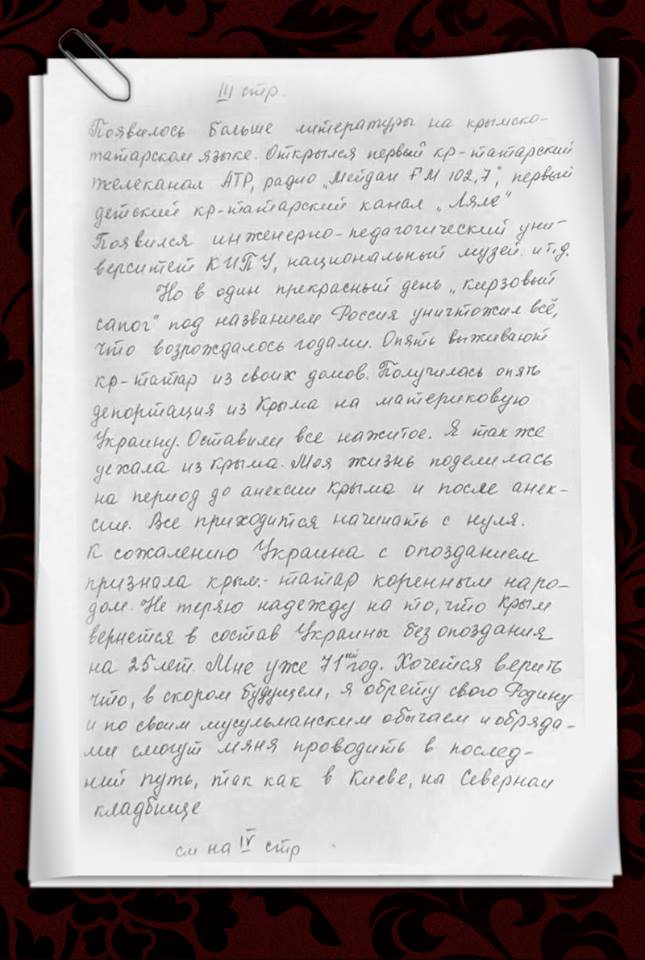 III стр.
Появилось больше литературы на крымско-
татарском языке. Открылся первый кр-татарский
телеканал АТР, радио „Мейдан FM 102,7", первый
детский кр-татарский канал „Ляле"
Появился инженерно-педагогический уни-
верситет КИПУ, национальный музей и т.д.
Но в один прекрасный день „кирзовый
сапог" под названием Россия уничтожил всё,
что возрождалось годами. Опять выживают
кр-татар из своих домов. Получилась опять
депортация из Крыма на материковую
Украину. Оставили все нажитое. Я так же
уехала из Крыма. Моя жизнь поделилась
на период до анексии Крыма и после анек-
сии. Все приходится начинать с нуля.
К сожалению Украина с опозданием
признала крым.-татар коренным наро-
дом. Не теряю надежду на то, что Крым
вернется в состав Украины без опоздания
на 25 лет. Мне уже 71ый год. Хочется верить
что, в скором будущем, я обрету свою Родину
и по своим мусульманским обычаем и обряда-
ми смогут меня проводить в послед-
ний путь, так как в Киеве, на Северном
кладбище
см на IV стр